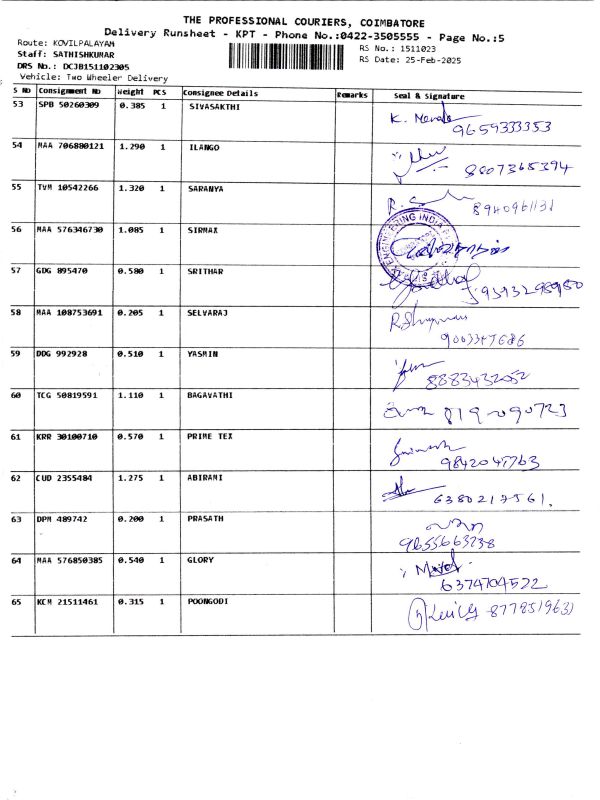 THE PROFESSIONAL COURIERS, COIMBATORE
Delivery Runsheet - KPT - Phone No.:0422-3505555 - Page No.:5
Route: KOVILPALAYAM
RS No.: 1511023
Staff: SATHISHKUMAR
RS Date: 25-Feb-2025
DRS No.: DCJB151102305
Vehicle: Two Wheeler Delivery
S No Consignment No Weight PCS Consignee Details Remarks Seal & Signature
53 SPB 50260309 0.385 1 SIVASAKTHI K.
9659333353
54 MAA 706880121 1.290 1 ILANGO
8007365394
55 TVM 10542266 1.320 1 SARANYA R.
8940961131
56 MAA 576346730 1.085 1 SIRMAX
ENGINEERING INDIA
57 GDG 895470 0.580 1 SRITHAR
58 MAA 108753691 0.205 1 SELVARAJ
9003347686
59 DDG 992928 0.510 1 YASMIN
8883432052
60 TCG 50819591 1.110 1 BAGAVATHI
61 KRR 30100710 0.570 1 PRIME TEX
9842047763
62 CUD 2355484 1.275 1 ABIRAMI
6380217561.
63 DPM 489742 0.200 1 PRASATH
9655663238
64 MAA 576850385 0.540 1 GLORY
6374704522
65 KCM 21511461 0.315 1 POONGODI